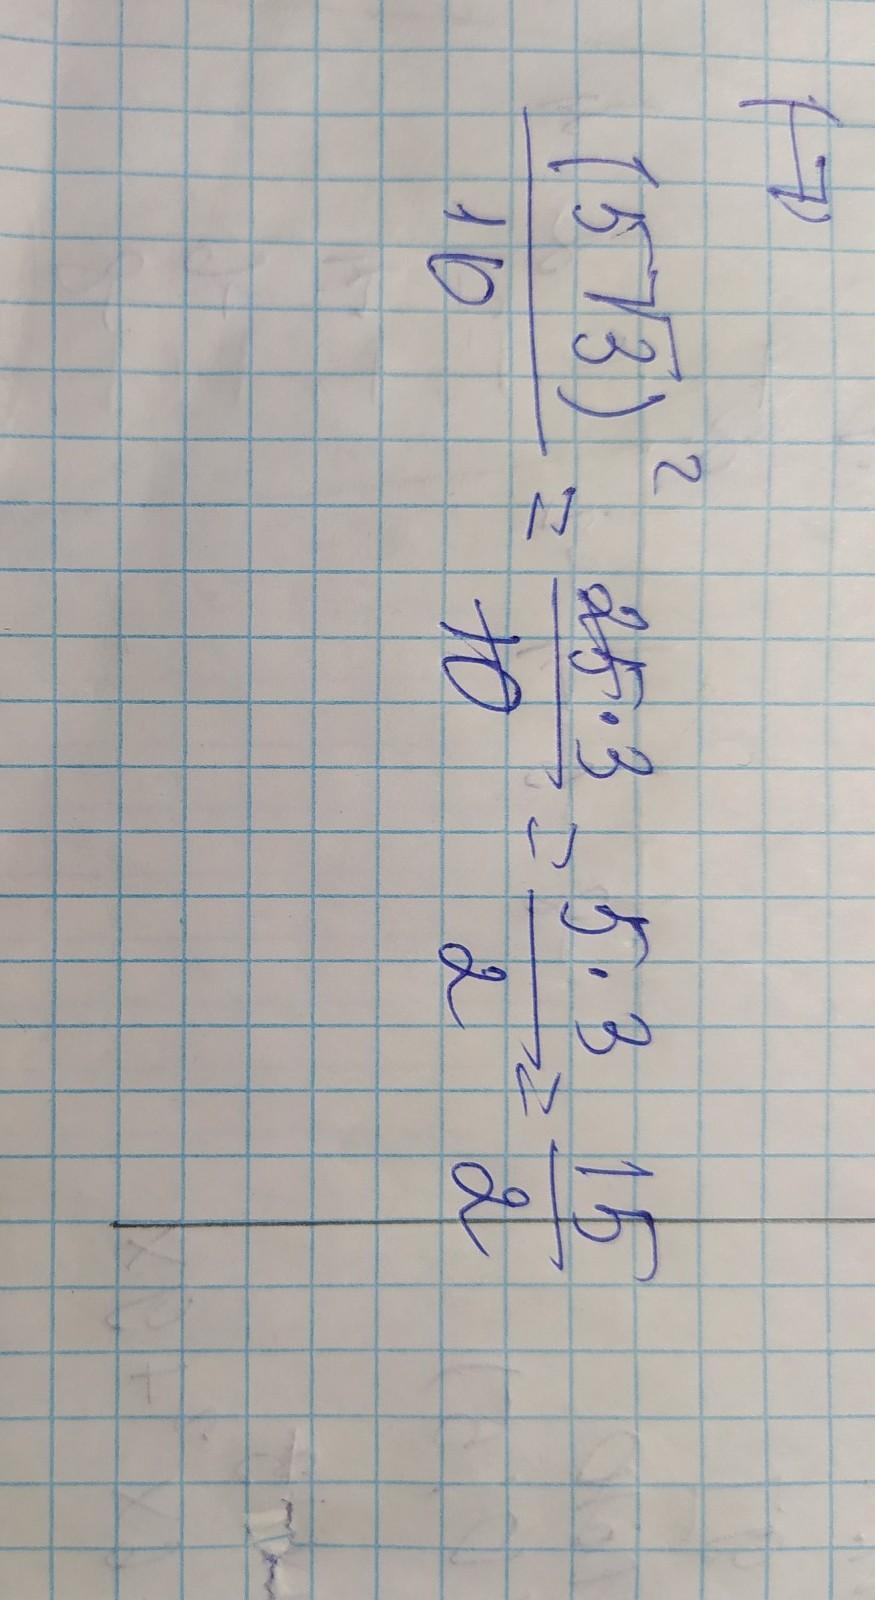 (5√3)² / 10 = 25·3 / 10 = 5·3 / 2 = 15 / 2